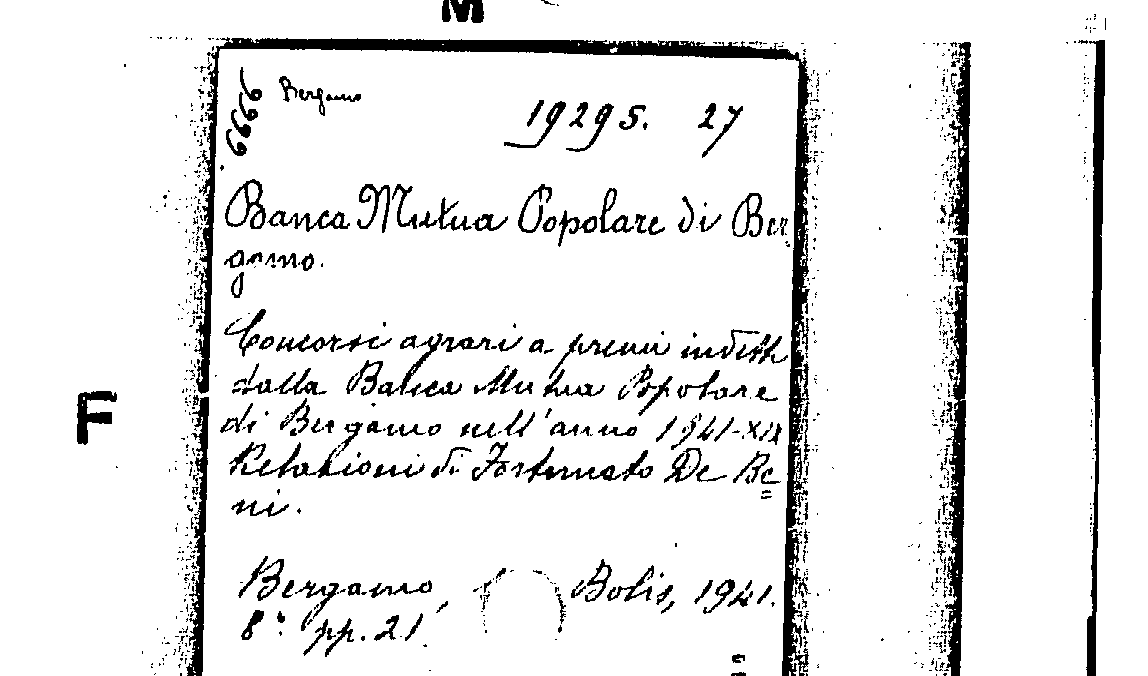 M
Bergamo
19295. 27
Banca Mutua Popolare di Ber
gamo.
Concorsi agrari a premi indetti
dalla Banca Mutua Popolare
di Bergamo nell'anno 1941-XIX
F
Relazioni di Fortunato De Be
ni.
Bergamo, Bolis, 1941.
8° pp. 21.